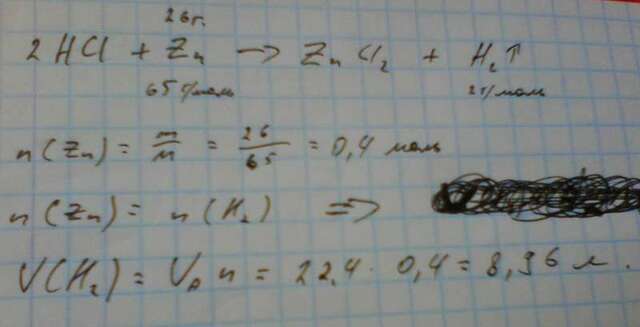 26г.
2HCl + Zn → ZnCl₂ + H₂↑
65 г/моль 2г/моль
n(Zn) = m/M = 26/65 = 0,4 моль
n(Zn) = n(H₂) ⇒
V(H₂) = V₀ n = 22,4 · 0,4 = 8,96 л.